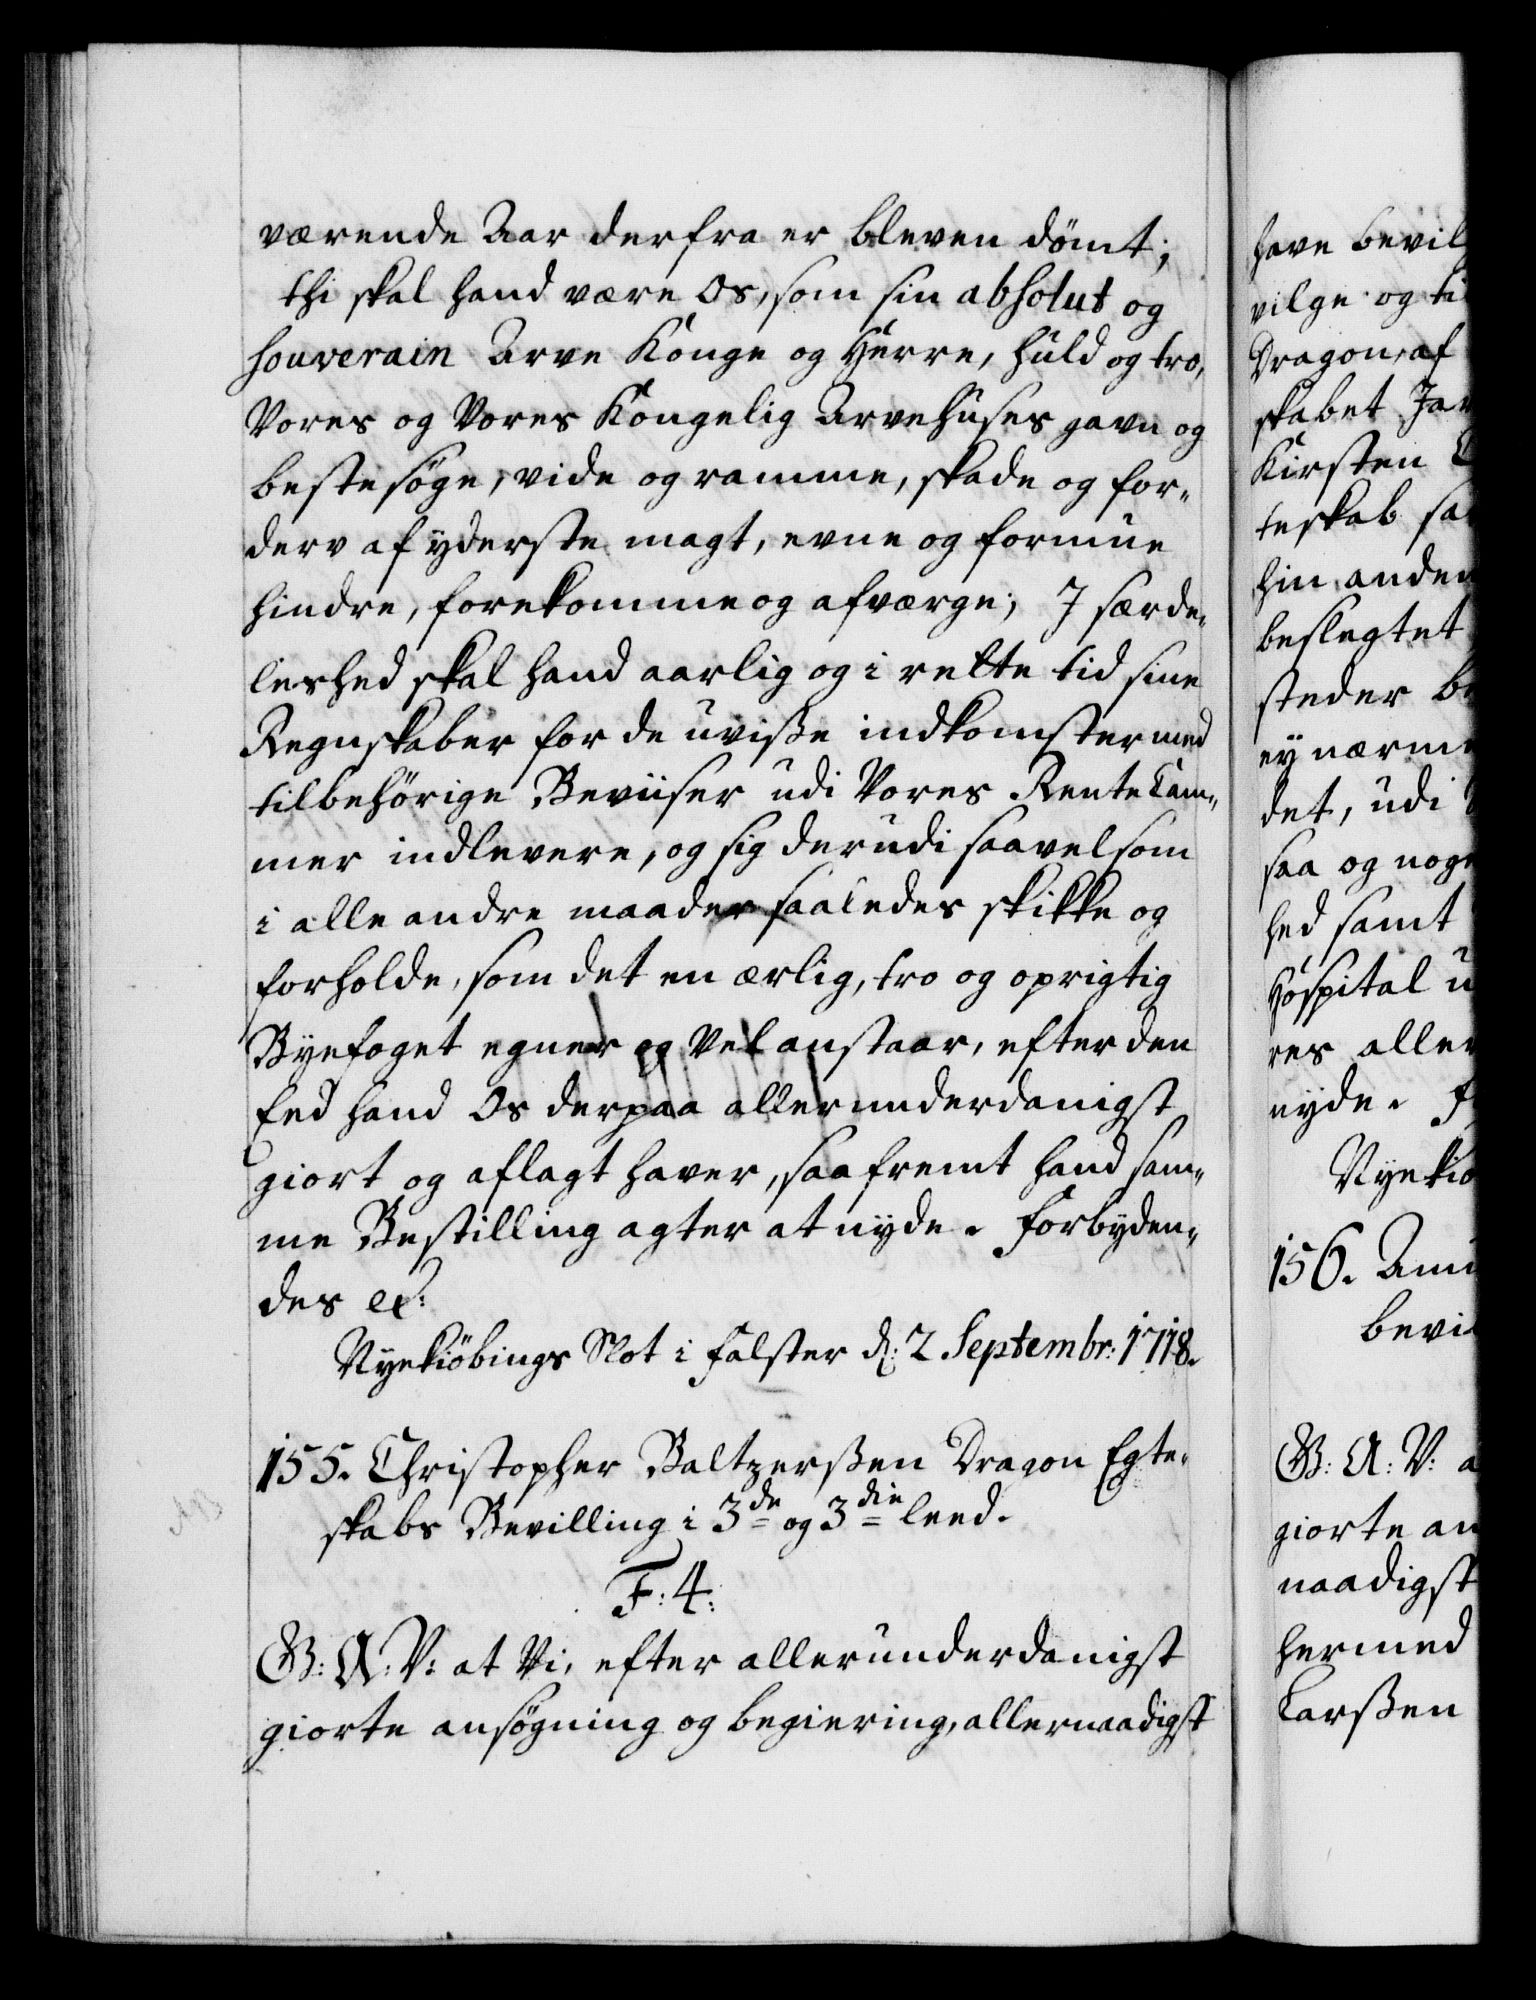 værende Aar derfra er bleven dömt;
thi skal hand være Os, som sin absolut og
souverain Arve Konge og Herre, huld og tro,
Vores og Vores Kongelig Arvehuses gavn og
beste söge, vide og ramme, skade og for„
derv af yderste magt, evne og formue
hindre, forekomme og afværge; J særde„
leshed skal hand aarlig og i rette tid sine
Regnskaber for de uvisse indkomster med
tilbehörige Beviiser udi Vores Rente Cam„
mer indlevere, og sig derudi saavelsom
i alle andre maader saaledes skikke og
forholde, som det en ærlig, tro og oprigtig
Byefoget egner og Vel anstaar, efter den
Eed hand Os derpaa allerunderdanigst
giort og aflagt haver, saafremt hand sam„
me Bestilling agter at nyde. Forbyden„
des etc:
Nyekiöbings Slot i Falster d: 2 Septembr: 1718.
155. Christopher Baltzerssen Dragon Egte„
skabs Bevilling i 3de og 3die leed.
F: 4:
G: A: V: at Vi, efter allerunderdanigst
giorte ansögning og begiering, allernaadigst
have bevil
vilge og ti
Dragon, af
skabet Ja
Kirsten
teskab sa
hin anden
beslegtet
steder be
ey nærme
det, udi
saa og noge
hed samt
Hospital u
res aller
nyde. F
Nyekiö
156. Amu
bevi
G: A: V: a
giorte an
naadigst
hermed
Larssen